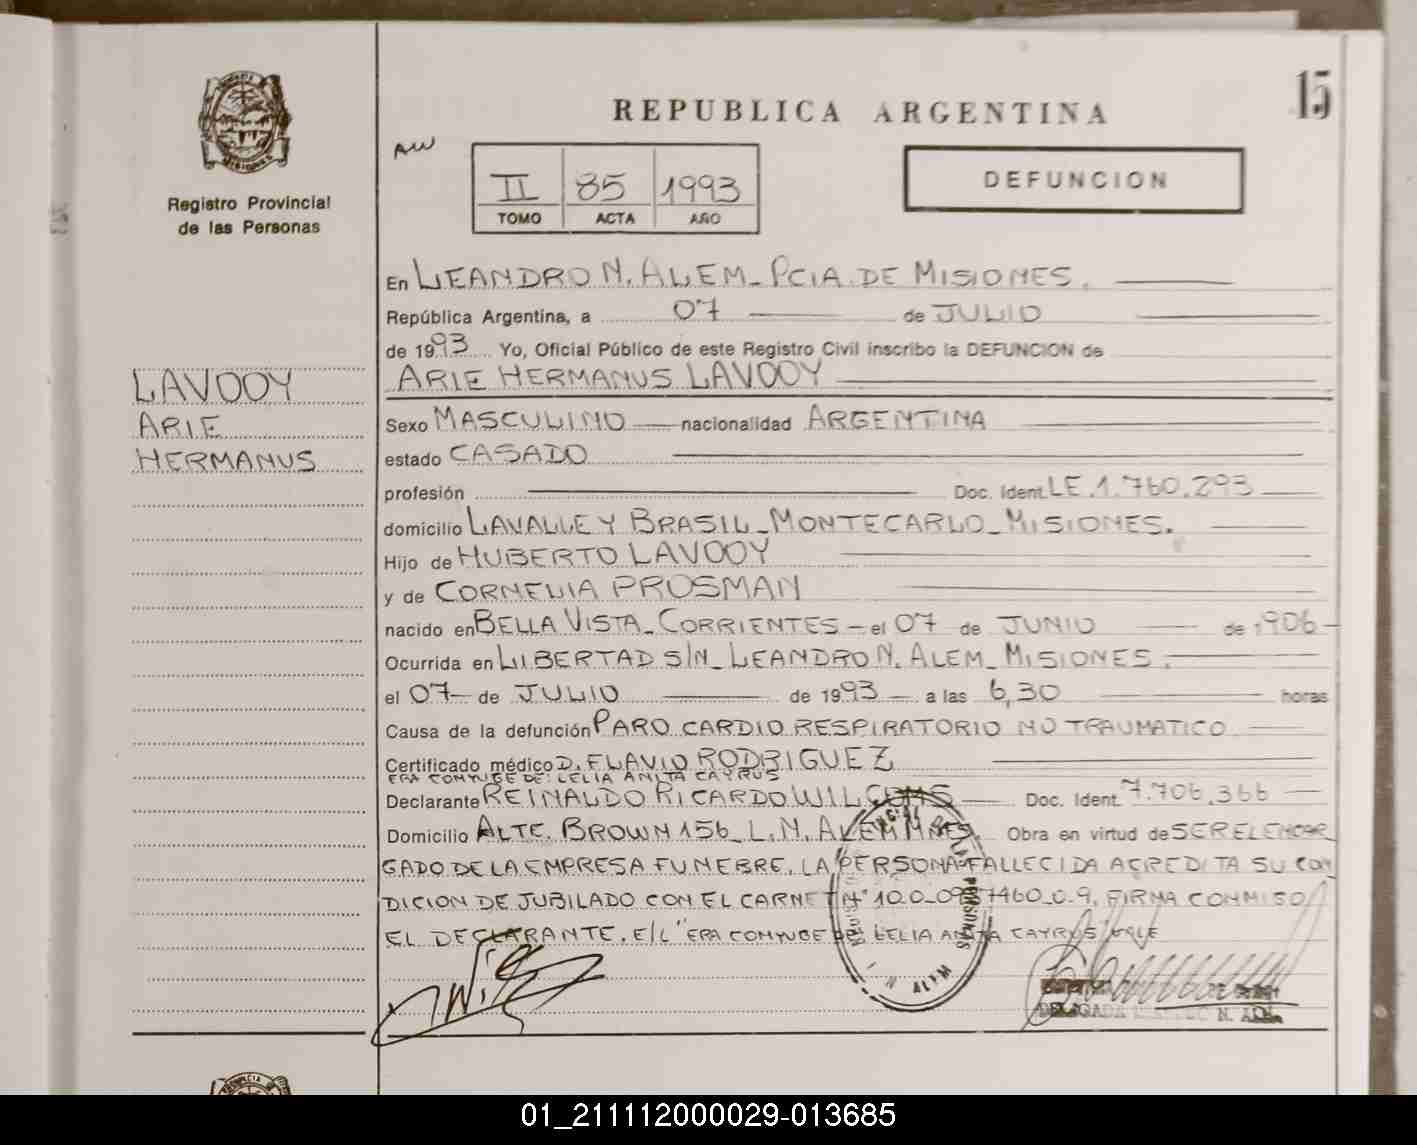 15
REPUBLICA ARGENTINA
II 85 1993
TOMO ACTA AÑO
DEFUNCION
MISIONES
Registro Provincial
de las Personas
LAVOOY
ARIE
HERMANUS
En LEANDRO N. ALEM_PCIA.DE MISIONES.
República Argentina, a 07 de JULIO
de 1993 Yo, Oficial Público de este Registro Civil inscribo la DEFUNCION de
ARIE HERMANUS LAVOOY
Sexo MASCULINO nacionalidad ARGENTINA
estado CASADO
profesión Doc. Ident. LE.1.760.293
domicilio LAVALLE Y BRASIL_MONTECARLO_MISIONES.
Hijo de HUBERTO LAVOOY
y de CORNELIA PROSMAN
nacido en BELLA VISTA_CORRIENTES - el 07 de JUNIO de 1906
Ocurrida en LIBERTAD S/N_LEANDRO N. ALEM_MISIONES.
el 07 de JULIO de 1993 a las 6,30 horas
Causa de la defunción PARO CARDIO RESPIRATORIO NO TRAUMATICO
Certificado médico D. FLAVIO RODRIGUEZ
ERA CONYUGE DE: LELIA ANITA CAYRUS
Declarante REINALDO RICARDO Doc. Ident. 7.706.366
Domicilio ALTE. BROWN 156_L.N. ALEM MNES. Obra en virtud de SER EL ENCAR
GADO DE LA EMPRESA FUNEBRE. LA PERSONA FALLECIDA ACREDITA SU CON
DICION DE JUBILADO CON EL CARNET Nº 10.0_09 7460_0_9. FIRMA CONMIGO
EL DECLARANTE. E/L "ERA CONYUGE DE: LELIA ANITA CAYRUS" VALE
DE LAS PERSONAS
N ALEM
DELEGADA N. ALEM
01_211112000029-013685